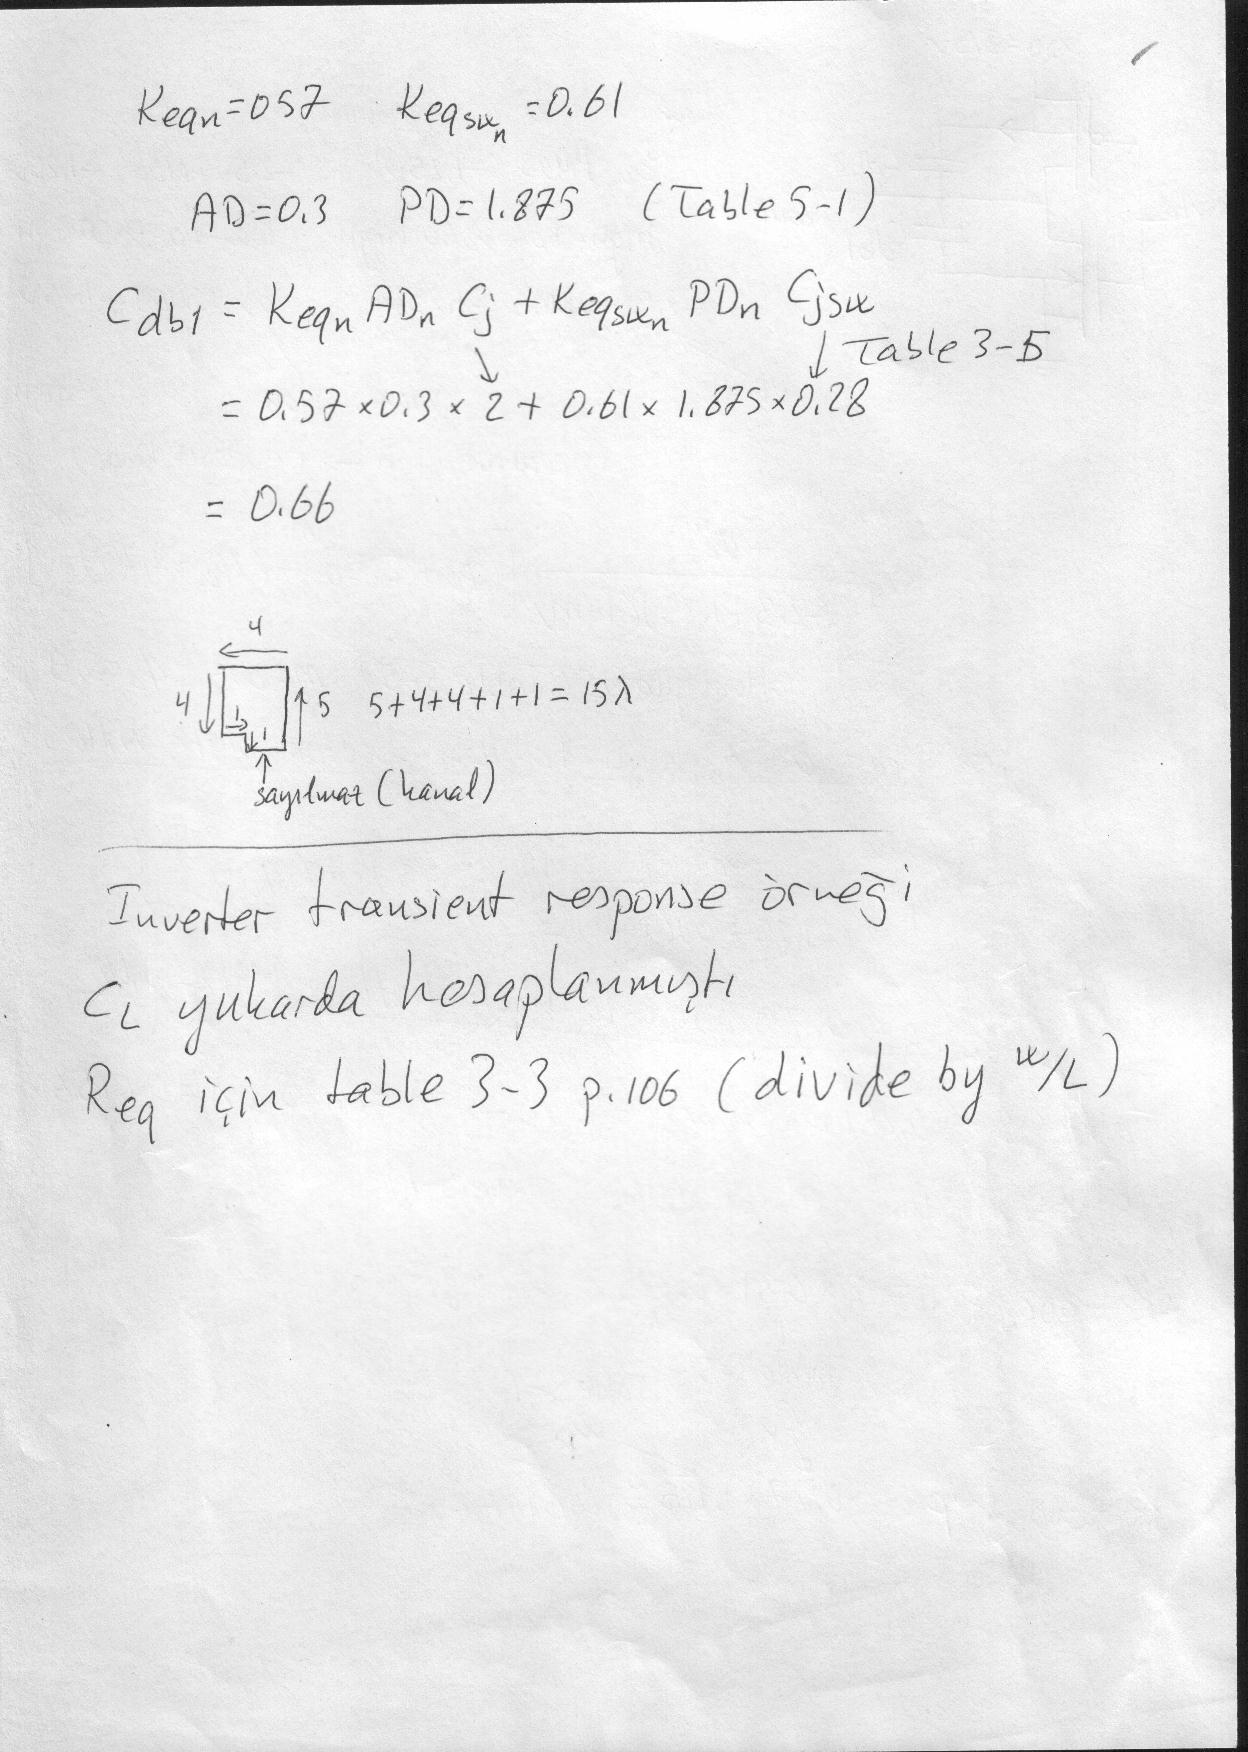 Keqn=057 Keqswn=0.61
AD=0.3 PD=1.875 (Table 5-1)
Cdb1 = Keqn ADn Cj + Keqswn PDn Cjsw
↓ Table 3-5
= 0.57 × 0.3 × 2 + 0.61 × 1.875 × 0.28
= 0.66
4
4 5 5+4+4+1+1=15λ
1
1
sayılmaz (kanal)
Inverter transient response örneği
CL yukarda hesaplanmıştı
Req için table 3-3 p.106 (divide by w/L)